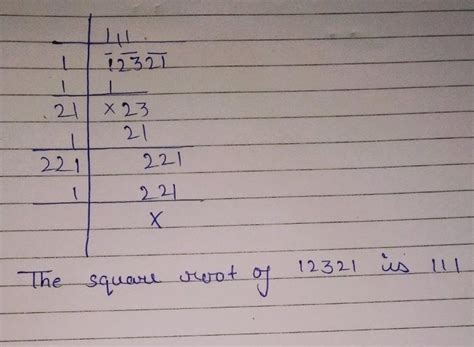 111
1 12321
1 1
21 x 23
1 21
221 221
1 221
x
The square root of 12321 is 111